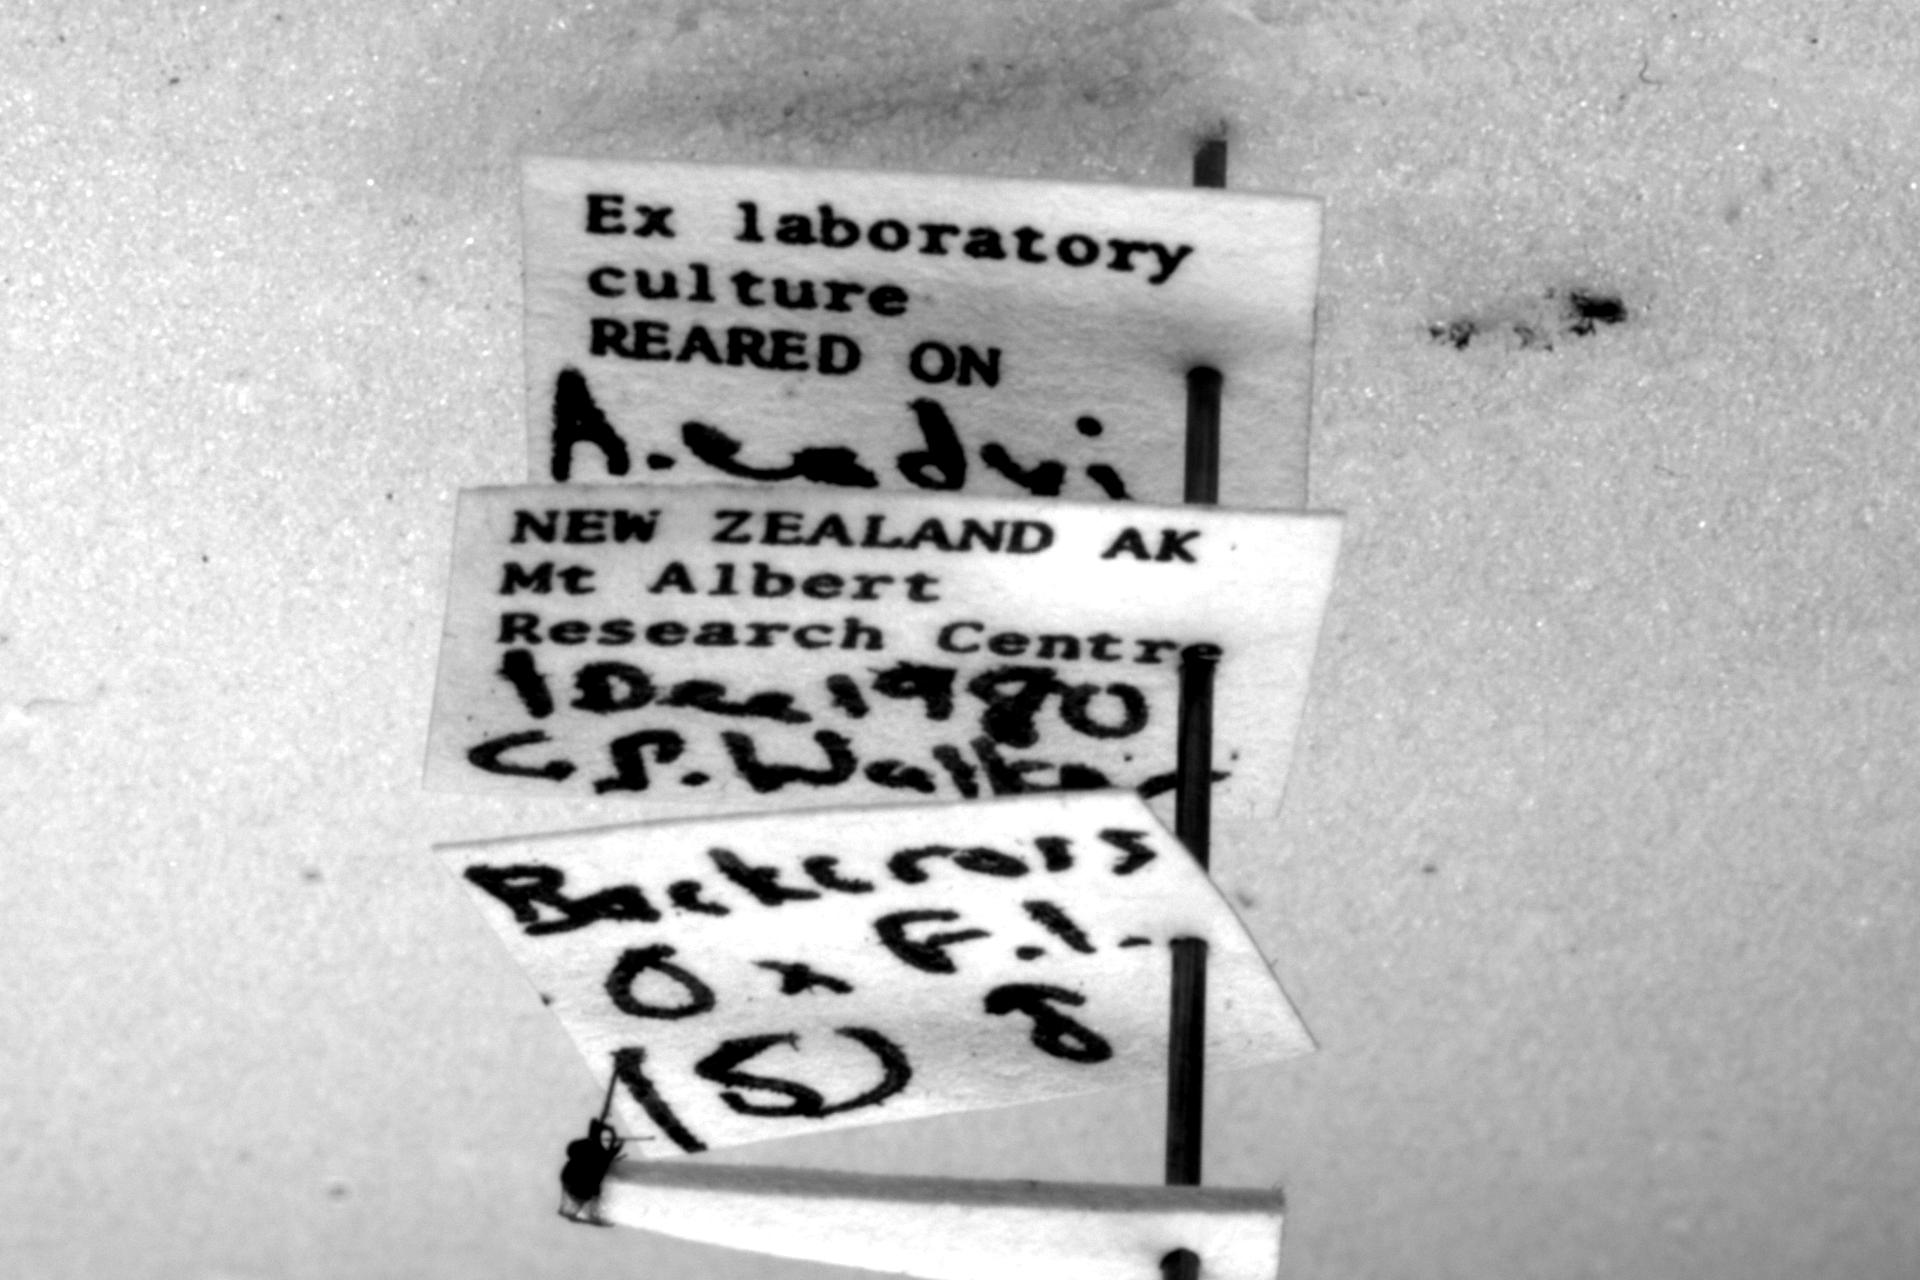 Ex laboratory
culture
REARED ON
A. eadyi
NEW ZEALAND AK
Mt Albert
Research Centre
1 Dec 1980
G.P. Walker
Backcross
O x F.1.
1 (S) 8